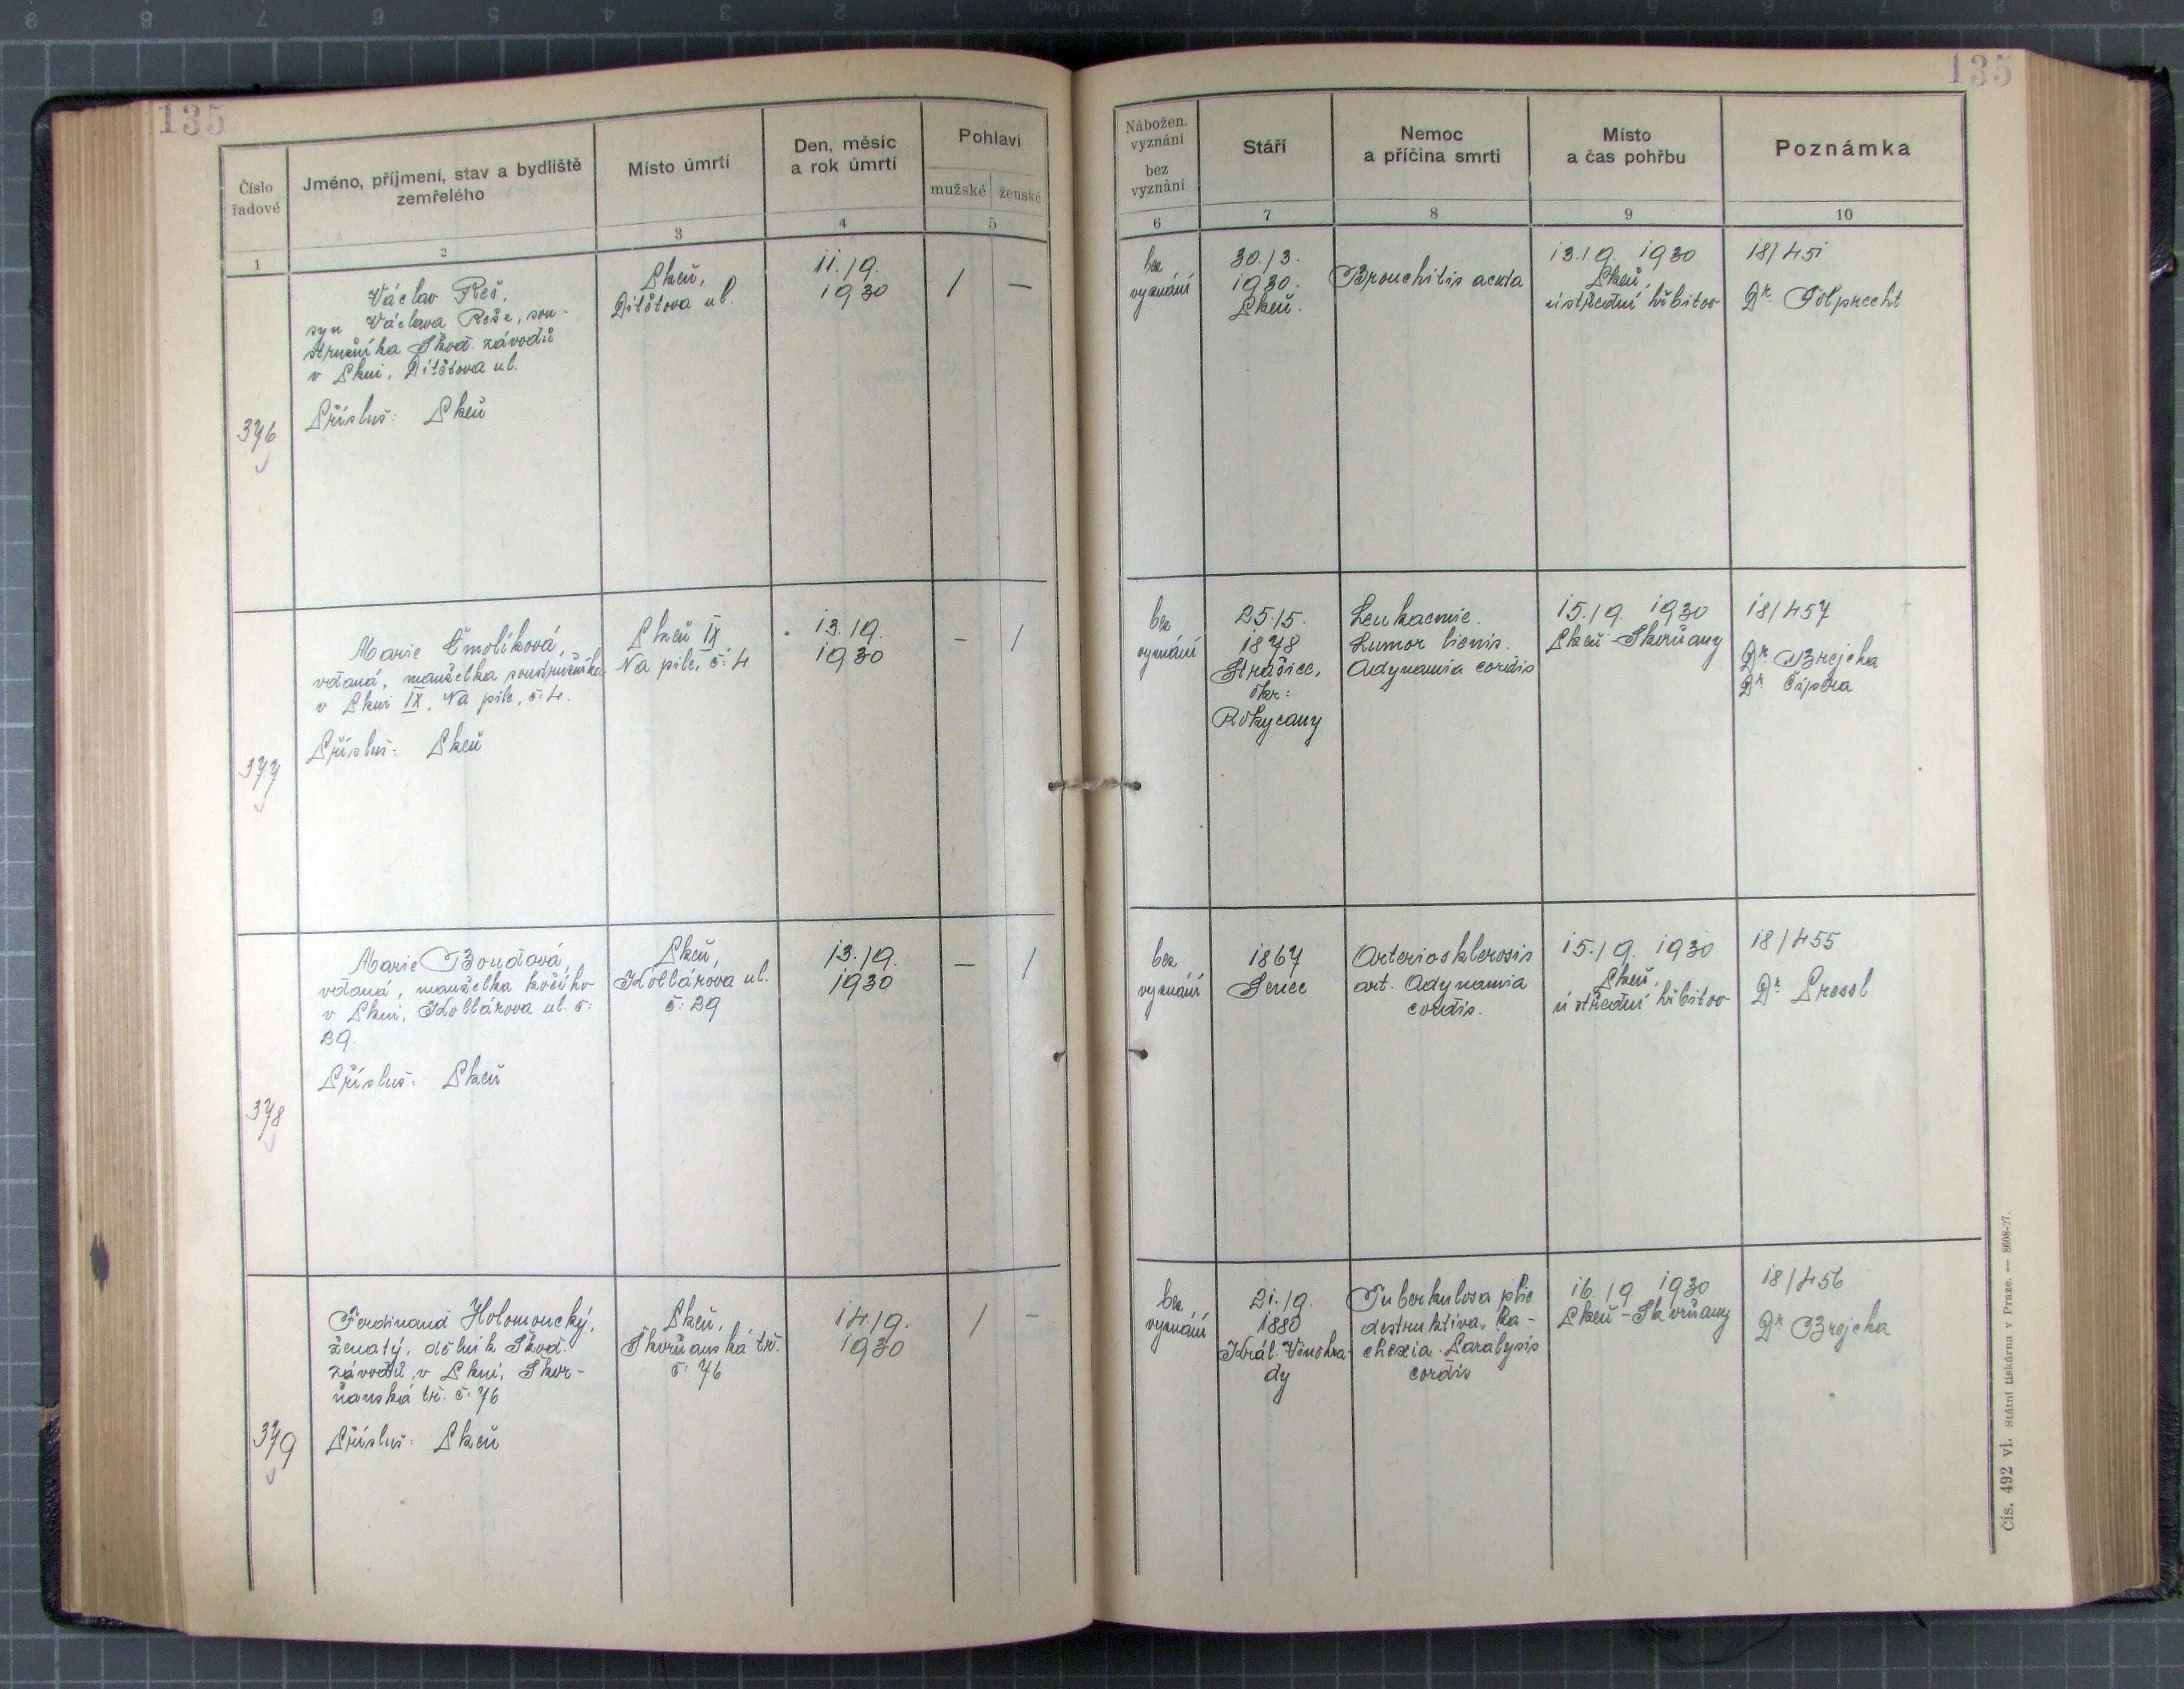 135
135
Číslo
řadové
Jméno, příjmení, stav a bydliště
zemřelého
Místo úmrtí
Den, měsíc
a rok úmrtí
Pohlaví
mužské
ženské
Nábožen.
vyznání
bez
vyznání
Stáří
Nemoc
a příčina smrti
Místo
a čas pohřbu
Poznámka
1
2
3
4
5
6
7
8
9
10
376
Václav Reš,
syn Václava Reše, sou-
stružníka Škod. závodů
v Plzni, Ditětova ul.
Přísluš: Plzeň
Plzeň,
Ditětova ul.
11./9.
1930
/
—
bez
vyznání
30./3.
1930.
Plzeň.
Bronchitis acuta
13./9. 1930
Plzeň,
ústřední hřbitov
18/451
Dr.
377
Marie Čmolíková,
vdaná, manželka soustružníka
v Plzni IX, Na pile, č: 4.
Přísluš: Plzeň
Plzeň IX
Na pile, č: 4
13./9.
1930
—
/
bez
vyznání
25./5.
1878
Strašice,
okr:
Rokycany
Leukaemie.
Tumor lienis.
Adynamia cordis
15./9. 1930
Plzeň-Skvrňany
18/457
Dr. Brejcha
Dr. Čipera
378
Marie Boudová,
vdaná, manželka kočího
v Plzni, Kollárova ul. č:
29.
Přísluš: Plzeň
Plzeň,
Kollárova ul.
č: 29
13./9.
1930
—
/
bez
vyznání
1867
Senec
Arteriosklerosis
art. Adynamia
cordis.
15./9. 1930
Plzeň,
ústřední hřbitov
18/455
Dr. Pressl
379
Ferdinand Holomoucký,
ženatý, dělník Škod.
závodů, v Plzni, Skvr-
ňanská tř. č: 76
Přísluš: Plzeň
Plzeň,
Skvrňanská tř.
č: 76
14./9.
1930
/
—
bez
vyznání
21./9.
1880
Král. Vinohra-
dy
Tuberkulosa plic
destruktiva. Ka-
chexia. Paralysis
cordis
16./9. 1930
Plzeň-Skvrňany
18/456
Dr. Brejcha
Čís. 492 vl. Státní tiskárna v Praze. — 8608-27.